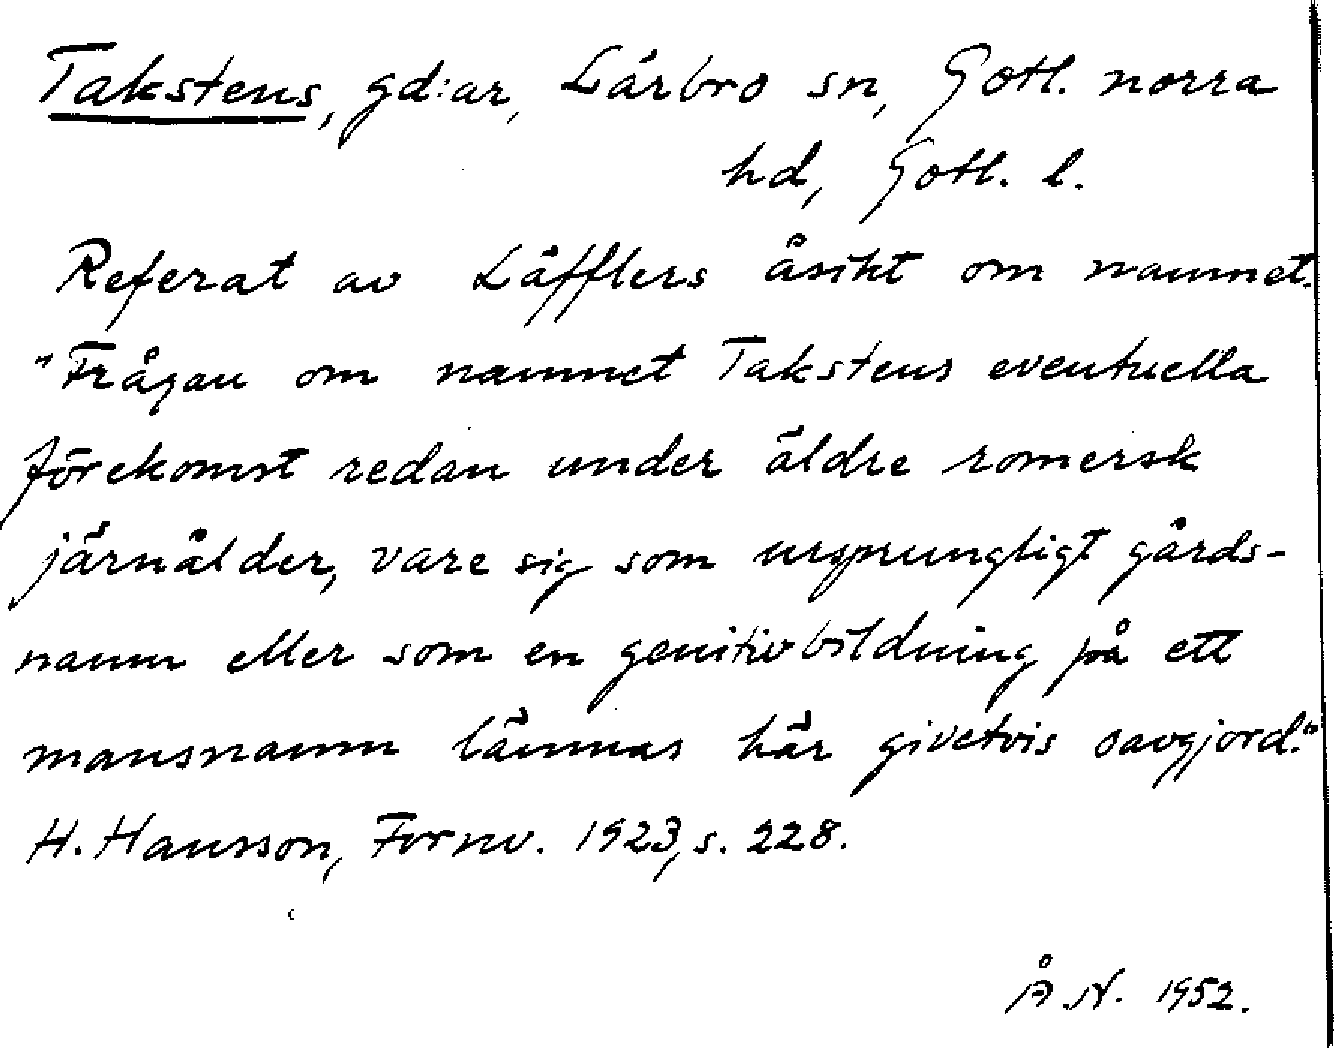 Takstens, gd:ar, Lärbro sn, Gotl. norra
hd, Gotl. l.
Referat av Läfflers åsikt om namnet.
"Frågan om namnet Takstens eventuella
förekomst redan under äldre romersk
järnålder, vare sig som ursprungligt gårds-
namn eller som en genitivbildning på ett
mansnamn lämnas här givetvis oavgjord."
H. Hansson, Fornv. 1923, s. 228.
Å.N. 1952.